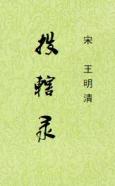 宋 王明清
投轄录